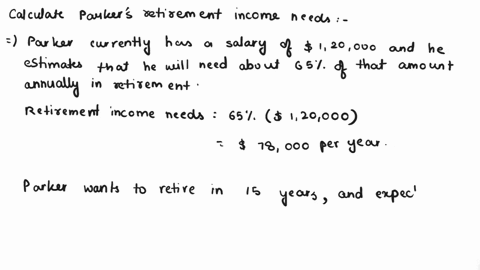 Calculate Parker's retirement income needs :-
=) Parker currently has a salary of $ 1,20,000 and he
estimates that he will need about 65% of that amount
annually in retirement.
Retirement income needs : 65% ($ 1,20,000)
= $ 78,000 per year.
Parker wants to retire in 15 years, and expec